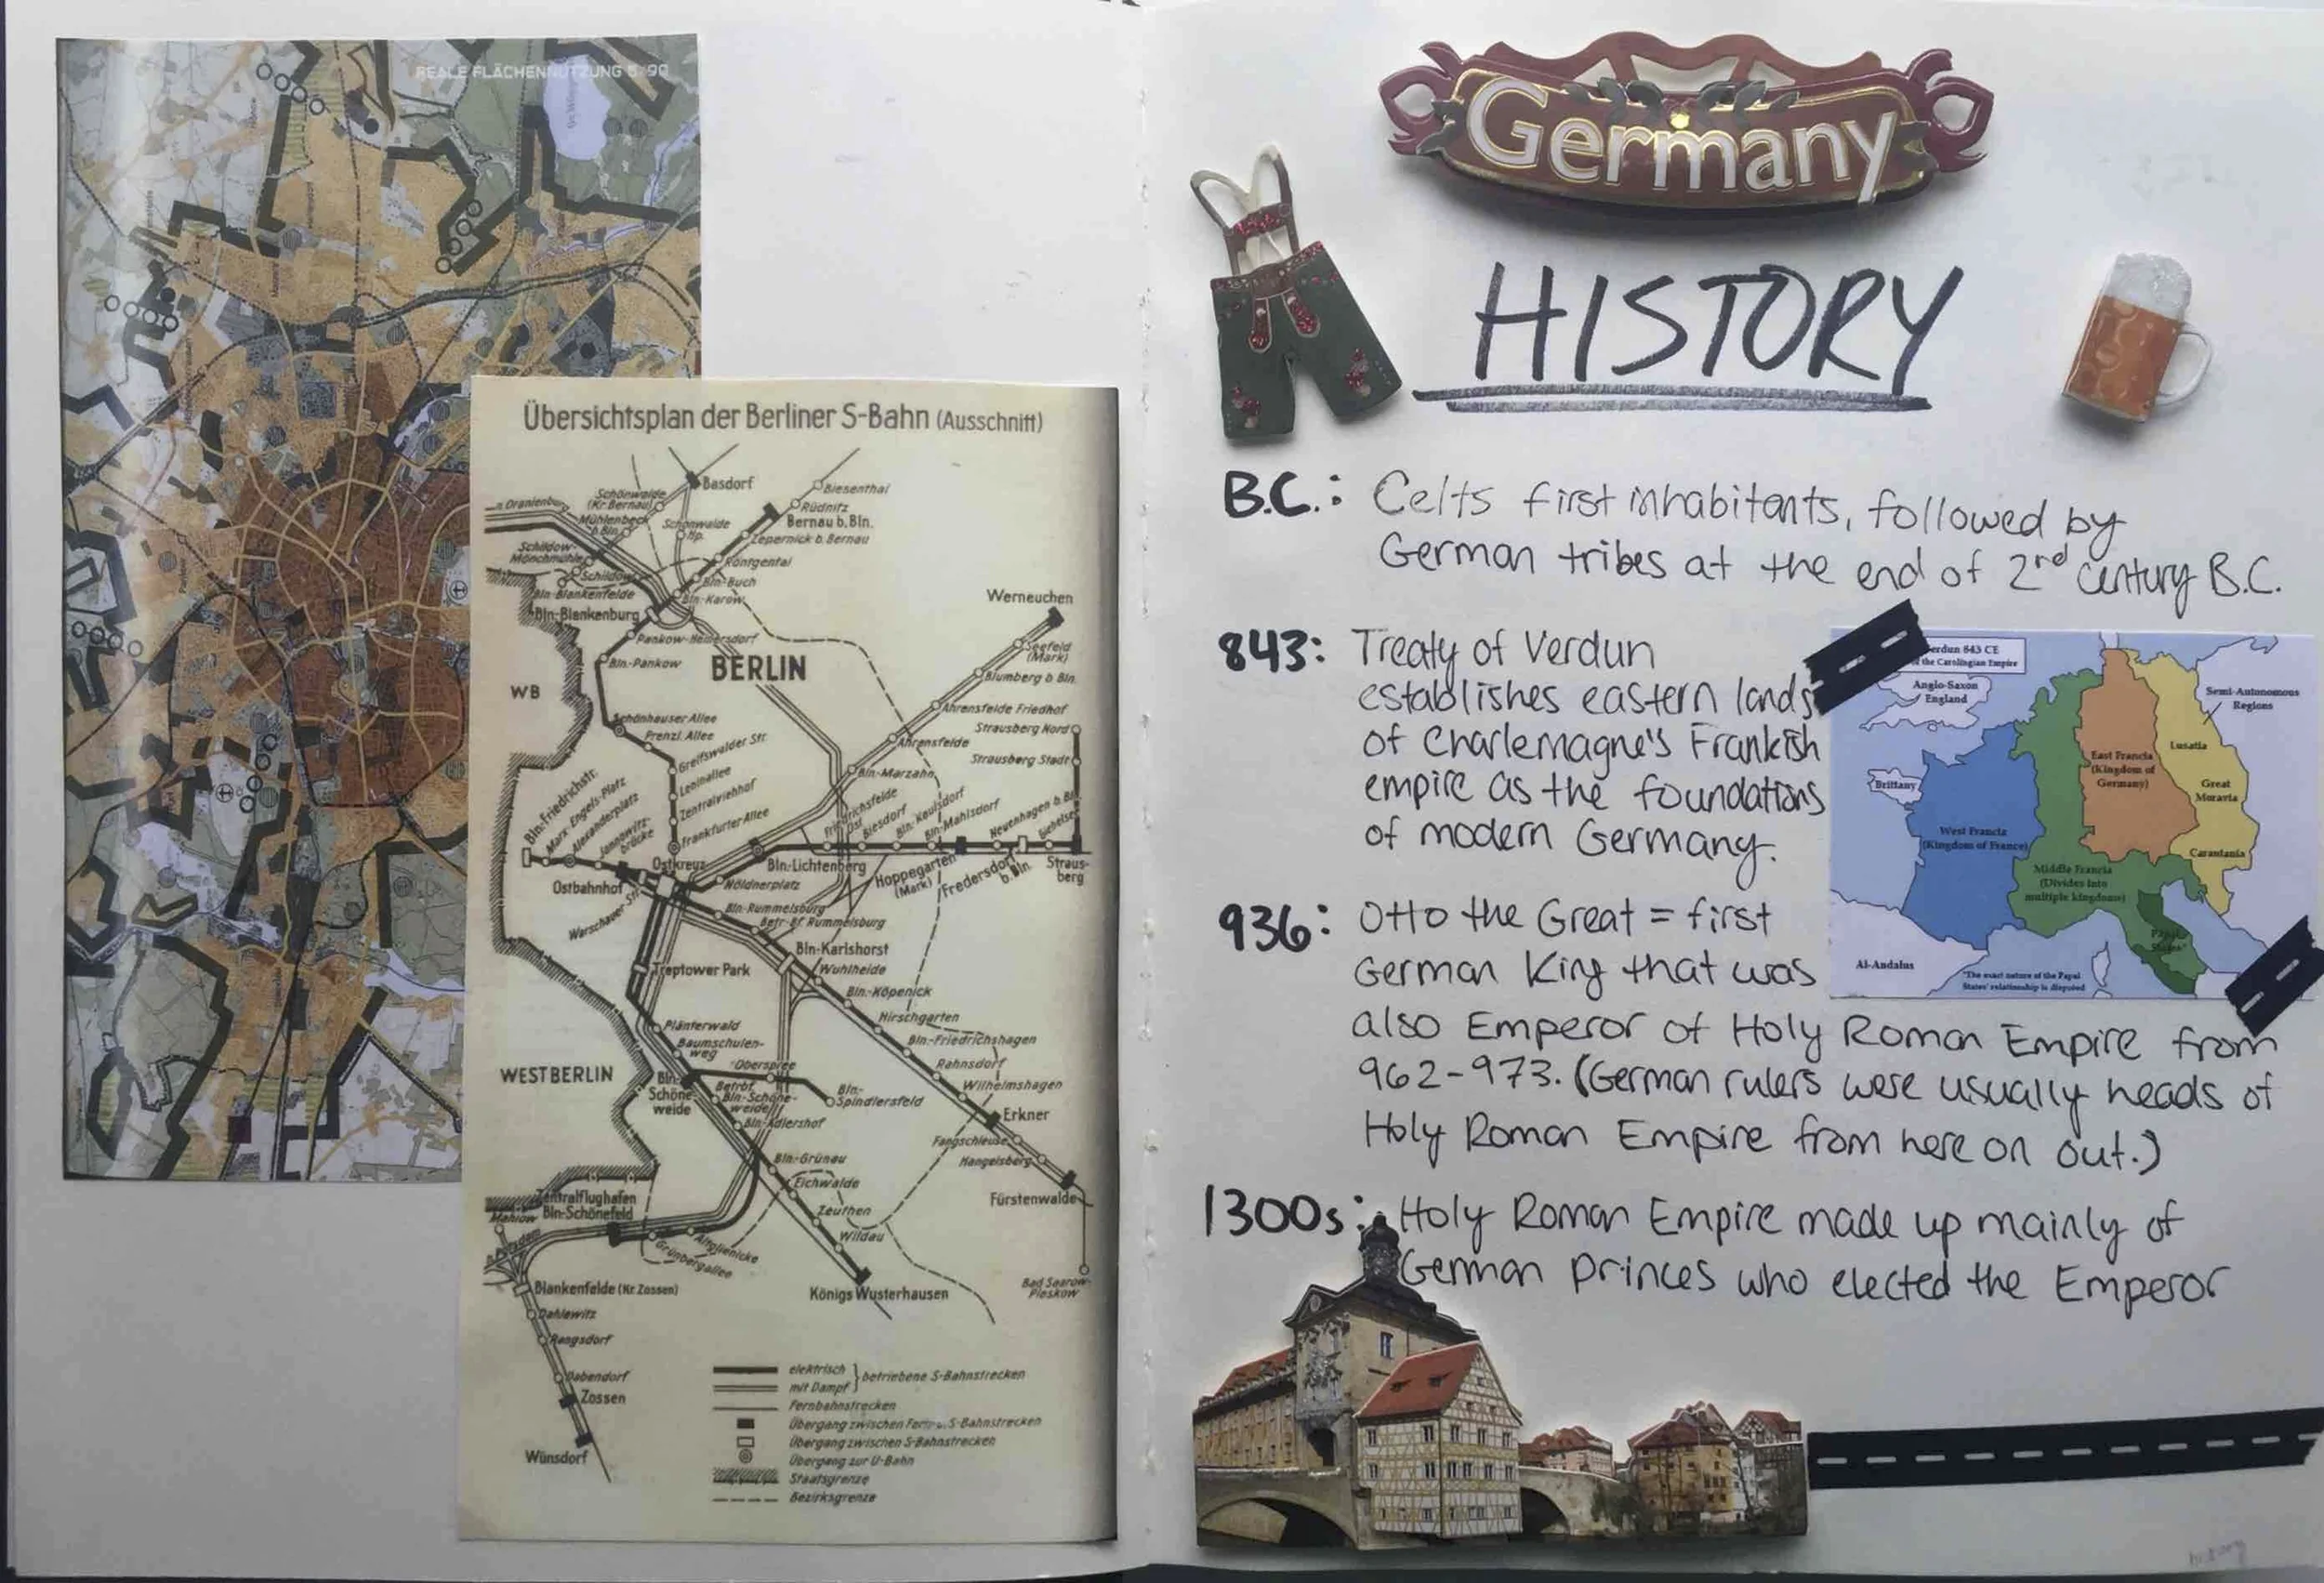 REALE FLÄCHENNUTZUNG 5/90
Übersichtsplan der Berliner S-Bahn (Ausschnitt)
Basdorf
Biesenthal
n. Oranienbu
Schönwalde
(Kr. Bernau)
Rüdnitz
Mühlenbeck
b. Bln.
Schönwalde
Hp.
Bernau b. Bln.
Zepernick b. Bernau
Schildow-
Mönchmühle
Röntgental
Schildow
Bln-Buch
Bln-Blankenfelde
Bln-Karow
Bln-Blankenburg
Werneuchen
Pankow-Heinersdorf
Seefeld
(Mark)
Bln.-Pankow
BERLIN
Blumberg b Bln.
WB
Ahrensfelde Friedhof
Schönhauser Allee
Strausberg Nord
Prenzl. Allee
Ahrensfelde
Greifswalder Str.
Strausberg Stadt
Leninallee
Bln-Marzahn
Zentralviehhof
Bln-Friedrichstr.
Marx-Engels-Platz
Alexanderplatz
Jannowitz-
brücke
Frankfurter Allee
Friedrichsfelde
Ost
Biesdorf
Bln-Kaulsdorf
Bln-Mahlsdorf
Neuenhagen b. Bln
Ostkreuz
Bln-Lichtenberg
Hoppegarten
(Mark)
Fredersdorf
b. Bln.
Straus-
berg
Ostbahnhof
Nöldnerplatz
Warschauer Str.
Bln-Rummelsburg
Betr-Bf. Rummelsburg
Bln-Karlshorst
Treptower Park
Wuhlheide
Bln.-Köpenick
Hirschgarten
Plänterwald
Bln-Friedrichshagen
Baumschulen-
weg
Oberspree
Rahnsdorf
WESTBERLIN
Bln-
Schöne-
weide
Betrbf.
Bln-Schöne-
weide
Bln-
Spindlersfeld
Wilhelmshagen
Erkner
Bln-Adlershof
Fangschleuse
Hangelsberg
Bln-Grünau
Eichwalde
Fürstenwalde
Zentralflughafen
Bln-Schönefeld
Mahlow
Zeuthen
Wildau
n. Potsdam
Altglienicke
Grünbergallee
Blankenfelde (Kr. Zossen)
Königs Wusterhausen
Bad Saarow-
Pieskow
Dahlewitz
Rangsdorf
Dabendorf
Zossen
Wünsdorf
elektrisch
mit Dampf
betriebene S-Bahnstrecken
Fernbahnstrecken
Übergang zwischen Fern- u. S-Bahnstrecken
Übergang zwischen S-Bahnstrecken
Übergang zur U-Bahn
Staatsgrenze
Bezirksgrenze
Germany
HISTORY
B.C.: Celts first inhabitants, followed by
German tribes at the end of 2nd century B.C.
843: Treaty of Verdun
establishes eastern lands
of Charlemagne's Frankish
empire as the foundations
of modern Germany.
erdun 843 CE
the Carolingian Empire
Anglo-Saxon
England
Semi-Autonomous
Regions
Lusatia
East Francia
(Kingdom of
Germany)
Brittany
Great
Moravia
West Francia
(Kingdom of France)
Carantania
Middle Francia
(Divides into
multiple kingdoms)
Papal
States*
Al-Andalus
*The exact nature of the Papal
States' relationship is disputed
936: Otto the Great = first
German King that was
also Emperor of Holy Roman Empire from
962-973. (German rulers were usually heads of
Holy Roman Empire from here on out.)
1300s: Holy Roman Empire made up mainly of
German princes who elected the Emperor